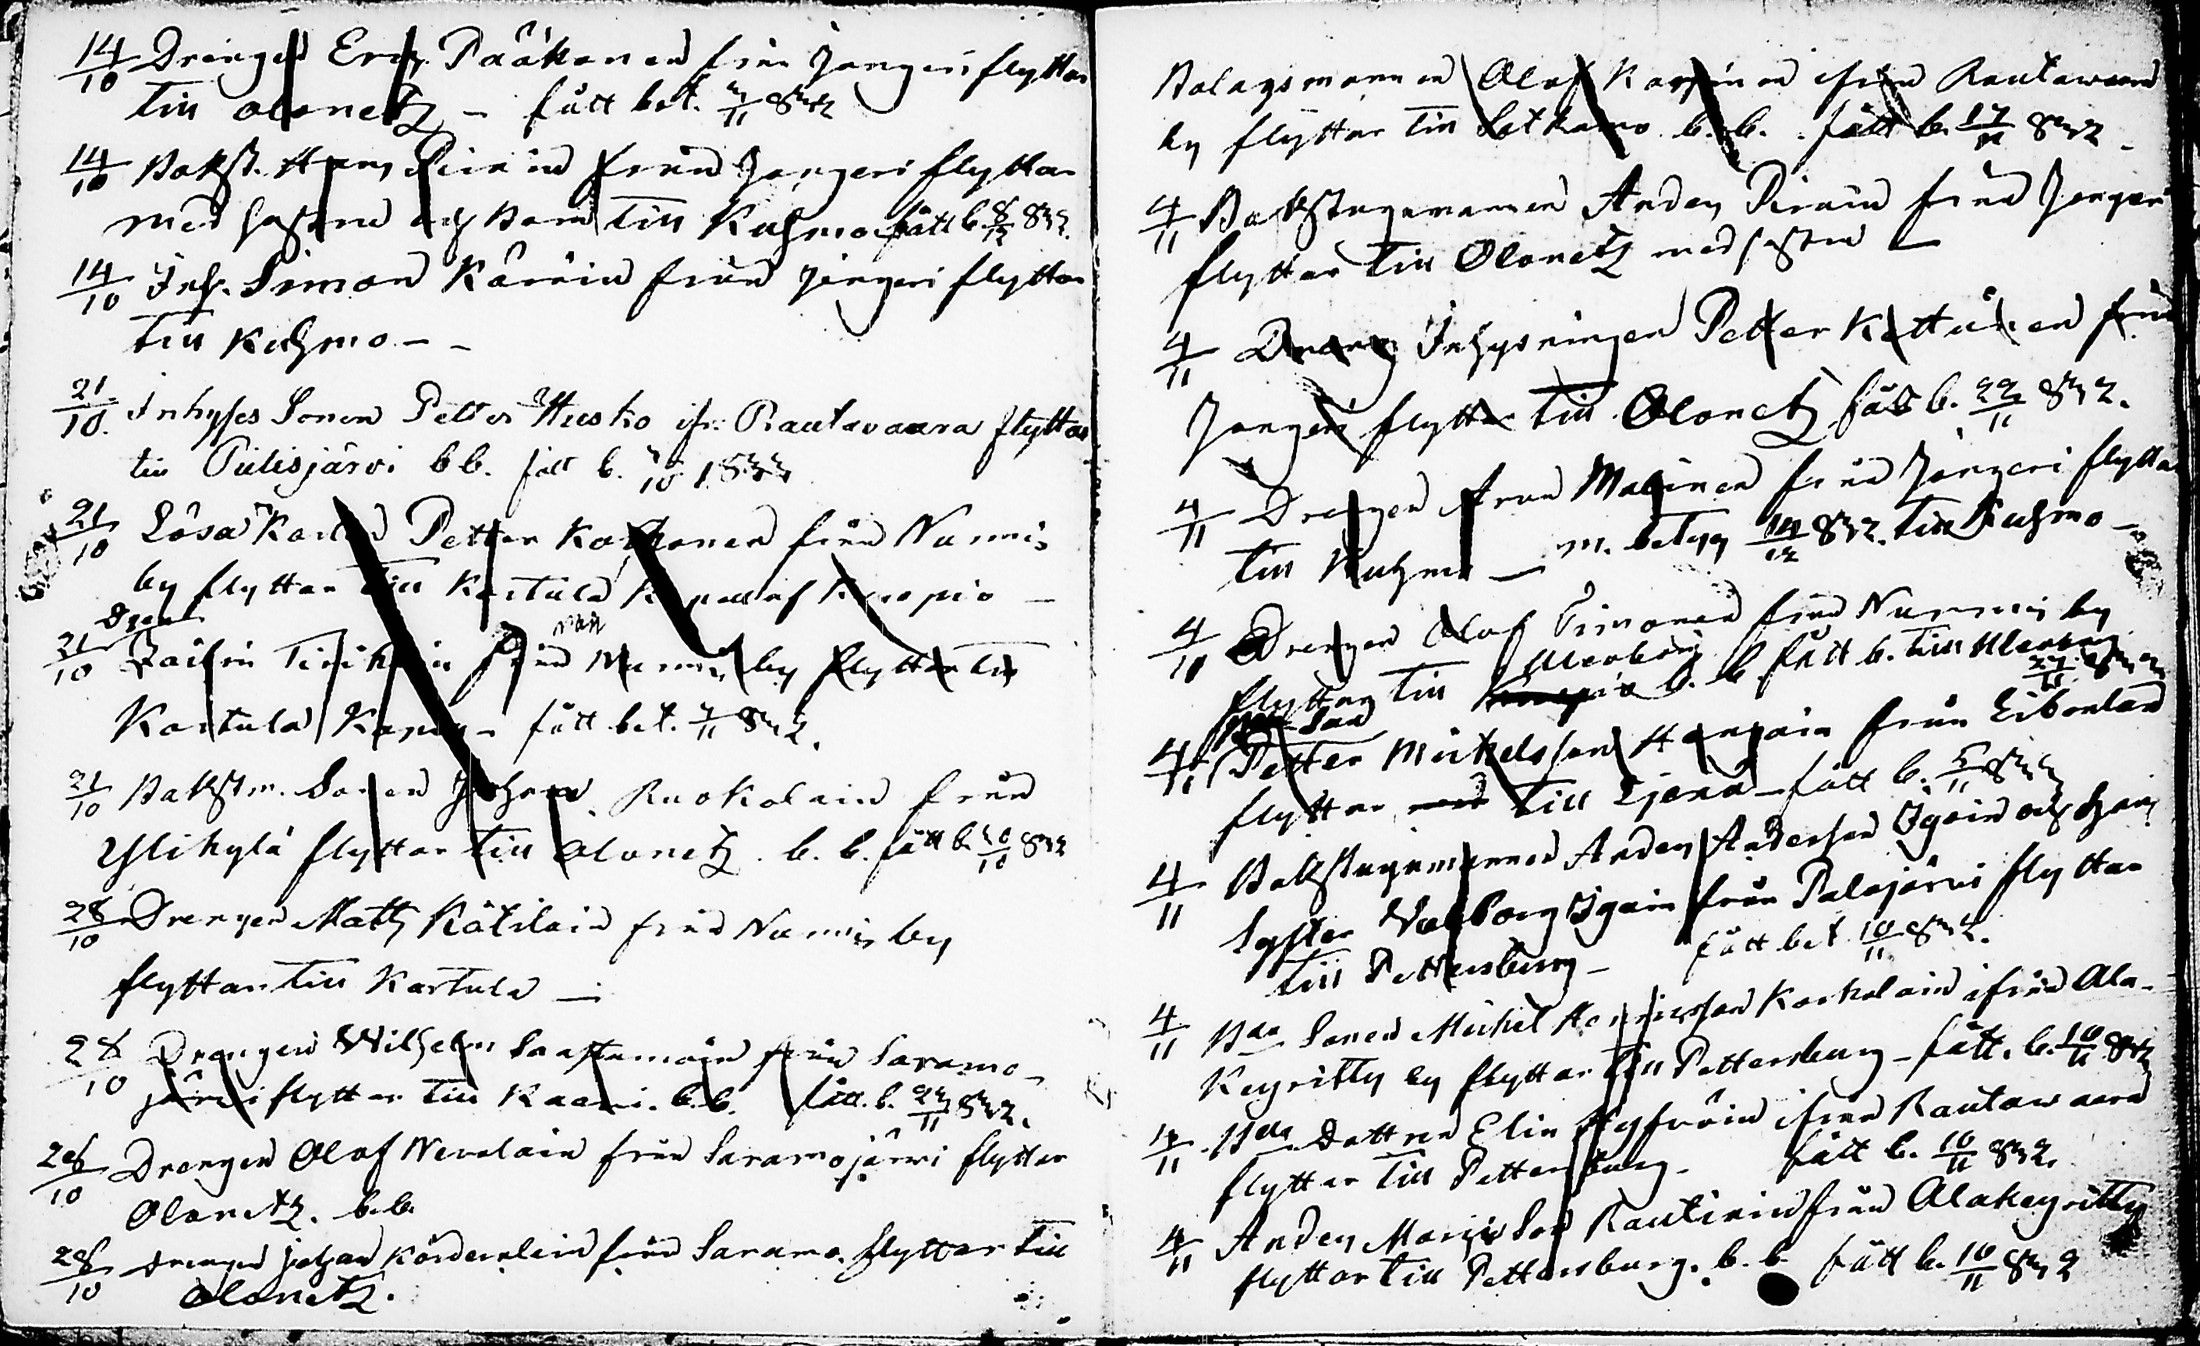 14/10 Drengen Eric Pääkönen från Jongeri flyttar
till Olonetz - fått bet. 2/11 832
14/10 Bakst. Hans Pirin från Jongeri flyttar
med hustru och barn till Kuhmo fått b. 8/12 832
14/10 Inh. Simon Kärnin från Jongeri flyttar
till Kuhmo - -
21/10. Inhyses Sonen Petter Husko ifr. Rautavaara flyttar
till Pielisjärvi bb. fått b. /10 1832
21/10 Lösa Karlen Petter Korhonen från Nurmis
by flyttar till Kartula Capell af Kuopio -
21/10 från Nurmis by flyttar till
Kartula Kapell - fått bet. 2/11 832.
21/10 Bakstm. Sonen Johan Ruokolain från
Ylikylä flyttar till Olonetz. b. b. fått b. 20/10 832
28/10 Drengen Matts Kätilain från Nurmis by
flyttar till Kartula -
28/10 Drengen Wilhelm Saastamoin från Saramo-
järvi flyttar till Kaavi. b.b. fått b. 22/11 832.
28/10 Drengen Olof Nevalain från Saramojärvi flyttar
Olonetz. b.b.
28/10 Drengen Johan från Saramo flyttar till
Olonetz.
Bolagsmannen Olof Karpinen ifrån Rautavaara
by flyttar till Sotkamo b.b. fått b. 17/11 832 -
4/11 Bakstugumannen Anders Pirain från Jongeri
flyttar till Olonetz med hustru -
4/11 Inhysningen Petter Kettunen från
Jongeri flyttar till Olonetz fått b. 22/11 832.
4/11 Drengen Aron Malinen från Jongeri flyttar
till Kuhmo - m. betyg 14/12 832. till Kuhmo -
4/11 Drengen Olof Timonen från Nurmis by
flyttar till Uleåborg b. b. fått b. till Uleåborg 832
4/11 Petter Michelsson från
flyttar till - fått b. 5/11 832
4/11 Bakstugumannen Anders Andersson Igoin och hans
Syster Walborg Igoin från Palojärvi flyttar
till Pettersburg - fått bet 10/11 832.
4/11 Bda Sonen Michel Henricsson Korholain ifrån Ala-
Keyritty by flyttar till Pettersburg - fått. b. 10/11 832
4/11 Bda Dottren Elin ifrån Rautavaara
flyttar till Pettersburg - fått b. 10/11 832.
4/11 Anders Son Rautiain från Alakeyritty
flyttar till Pettersburg. b. b fått b. 10/11 832